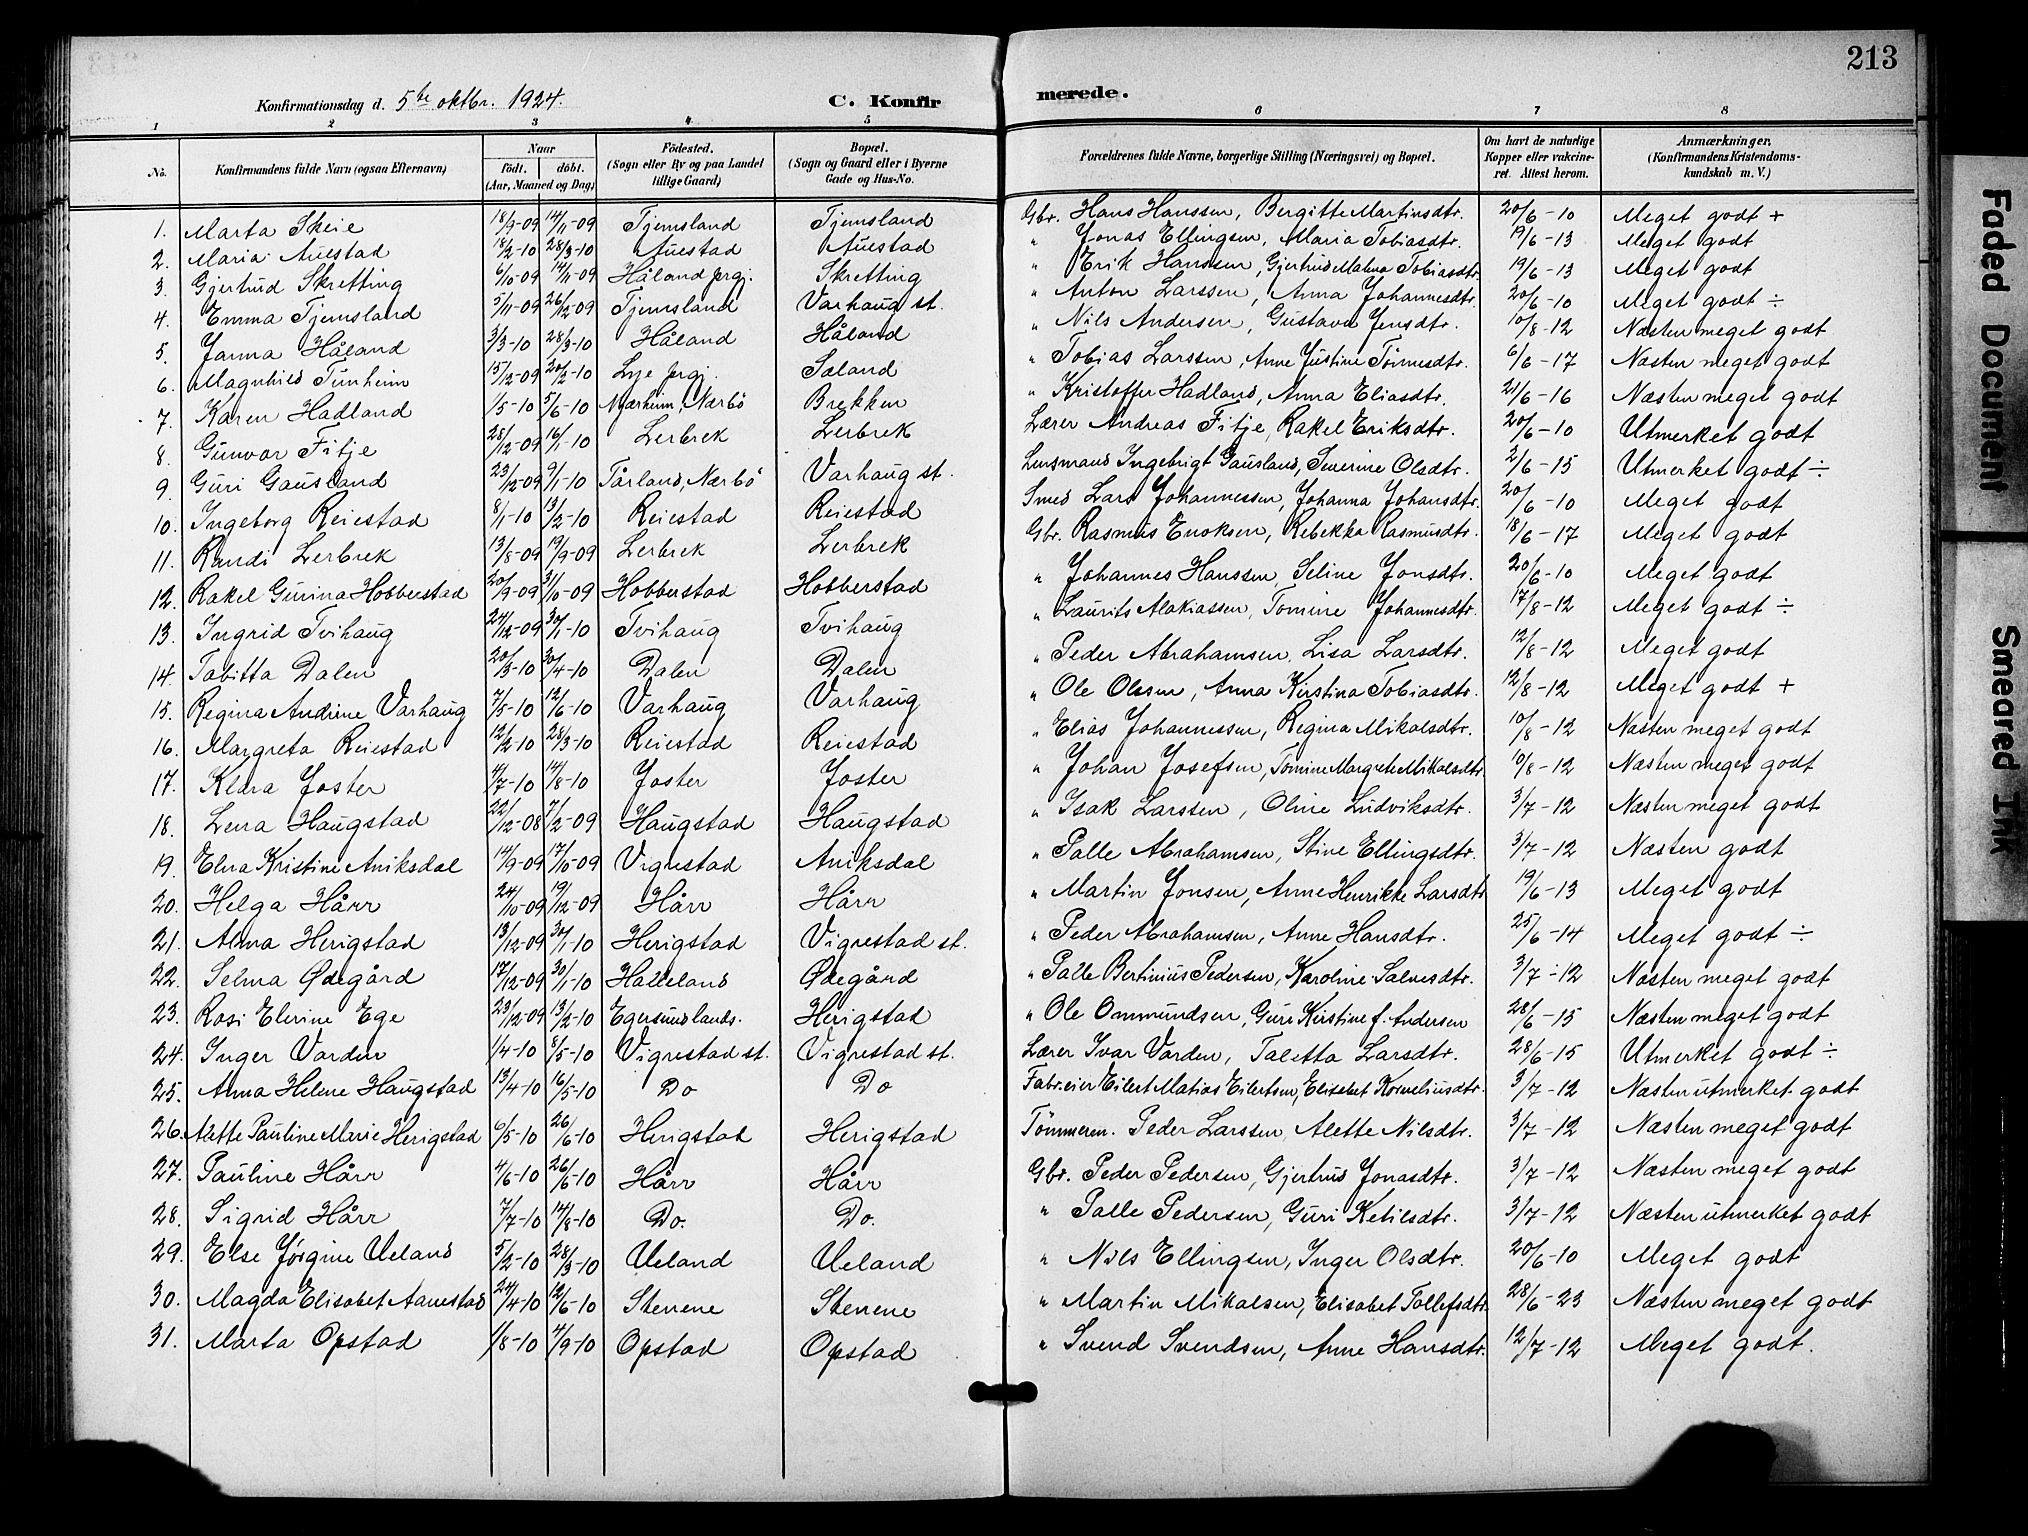 213
Konfirmationsdag d. 5te oktbr. 1924.
C. Konfirmerede.
1 2 3 4 5 6 7 8
No. | Konfirmandens fulde Navn (ogsaa Efternavn) | Naar født. døbt. (Aar, Maaned og Dag) | Födested. (Sogn eller By og paa Landet tillige Gaard) | Bopæl. (Sogn og Gaard eller i Byerne Gade og Hus-No. | Forældrenes fulde Navne, borgerlige Stilling (Næringsvei) og Bopæl. | Om havt de naturlige Kopper eller vakcineret. Attest herom. | Anmærkninger. (Konfirmandens Kristendomskundskab m. V.)
1. Marta Skeie 18/9-09 14/11-09 Tjemsland Tjemsland Gbr. Hans Hanssen, Bergitte Martinsdtr. 20/6-10 Meget godt +
2. Maria Auestad 18/2-10 28/3-10 Auestad Auestad " Jonas Ellingsen, Maria Tobiasdtr. 19/6-13 Meget godt
3. Gjertrud Skretting 6/10-09 14/11-09 Håland prgj. Skretting " Erik Hanssen, Gjertrud Malena Tobiasdtr 19/6-13 Meget godt
4. Emma Tjemsland 5/11-09 26/12-09 Tjemsland Varhaug st. " Anton Larssen, Anna Johannesdtr. 20/6-10 Meget godt ÷
5. Janna Håland 3/3-10 28/3-10 Håland Håland " Nils Andersen, Gustava Jensdtr. 10/8-12 Næsten meget godt
6. Magnhild Tunheim 15/12-09 20/2-10 Lye prgj. Sæland " Tobias Larssen, Anne Justine Tønnesdtr. 6/6-17 Næsten meget godt
7. Karen Hadland 1/5-10 5/6-10 Nærheim, Nærbö Brekken " Kristoffer Hadland, Anna Eliasdtr. 21/6-16 Næsten meget godt
8. Gunvor Fitje 28/12-09 16/1-10 Lerbrek Lerbrek Lærer Andreas Fitje, Rakel Eriksdtr. 20/6-10 Utmerket godt
9. Guri Gausland 23/12-09 9/1-10 Tårland, Nærbö Varhaug st. Lensmand Ingebrigt Gausland, Severine Olsdtr. 2/6-15 Utmerket godt ÷
10. Ingeborg Reiestad 8/1-10 13/2-10 Reiestad Reiestad Smed Lars Johannessen, Johanna Johansdtr. 20/6-10 Meget godt
11. Randi Lerbrek 13/8-09 19/9-09 Lerbrek Lerbrek Gbr. Rasmus Enoksen, Rebekka Rasmusdtr. 18/6-17 Meget godt
12. Rakel Gurina Hobberstad 20/9-09 31/10-09 Hobberstad Hobberstad " Johannes Hanssen, Seline Jonsdtr. 20/6-10 Meget godt
13. Ingrid Tvihaug 24/12-09 30/1-10 Tvihaug Tvihaug " Laurits Alakiassen, Tomine Johannesdtr. 17/8-12 Meget godt ÷
14. Tabitta Dalen 20/3-10 30/4-10 Dalen Dalen " Peder Abrahamsen, Lisa Larsdtr. 12/8-12 Meget godt
15. Regina Andrine Varhaug 7/5-10 12/6-10 Varhaug Varhaug " Ole Olssen, Anna Kirstina Tobiasdtr. 12/8-12 Meget godt +
16. Margreta Reiestad 12/2-10 28/3-10 Reiestad Reiestad " Elias Johannessen, Regina Mikalsdtr. 10/8-12 Næsten meget godt
17. Klara Joster 4/7-10 14/8-10 Joster Joster " Johan Josefsen, Tomine Margrete Mikalsdtr 10/8-12 Næsten meget godt
18. Lena Haugstad 22/12-08 7/2-09 Haugstad Haugstad " Isak Larssen, Oline Ludviksdtr. 3/7-12 Næsten meget godt
19. Elna Kristine Aniksdal 14/9-09 17/10-09 Vigrestad Aniksdal " Palle Abrahamsen, Stine Ellingsdtr. 3/7-12 Næsten godt
20. Helga Hårr 24/10-09 19/12-09 Hårr Hårr " Martin Jonsen, Anne Henrikke Larsdtr 19/6-13 Meget godt
21. Alma Herigstad 13/12-09 30/1-10 Herigstad Vigrestad st. " Peder Abrahamsen, Anne Hansdtr. 25/6-14 Meget godt ÷
22. Selma Ødegård 17/12-09 30/1-10 Halleland Ødegård " Palle Bertinius Pedersen, Karoline Salvesdtr. 3/7-12 Næsten meget godt
23. Rasi Elerine Ege 23/12-09 13/2-10 Egersund lands. Herigstad " Ole Ommundsen, Guri Kirstine f. Andersen 28/6-15 Næsten meget godt
24. Inger Varden 1/4-10 8/5-10 Vigrestad st. Vigrestad st. Lærer Ivar Varden, Taletta Larsdtr. 28/6-15 Utmerket godt ÷
25. Anna Helene Haugstad 13/4-10 16/5-10 Do Do Fabr.eier Eilert Matias Eilertsen, Elisabet Korneliusdtr. 3/7-12 Næsten utmerket godt
26. Alette Pauline Marie Herigstad 6/5-10 26/6-10 Herigstad Herigstad Tömmerm. Peder Larssen, Alette Nilsdtr. 3/7-12 Næsten meget godt
27. Pauline Hårr 4/6-10 26/6-10 Hårr Hårr Gbr. Peder Pedersen, Gjertrud Jonasdtr. 3/7-12 Næsten meget godt
28. Sigrid Hårr 7/7-10 14/8-10 Do. Do. " Palle Pedersen, Guri Ketilsdtr. 3/7-12 Næsten utmerket godt
29. Else Jørgine Ueland 5/2-10 28/3-10 Ueland Ueland " Nils Ellingsen, Inger Olsdtr. 20/6-10 Meget godt
30. Magda Elisabet Aanestad 24/4-10 12/6-10 Stenene Stenene " Martin Mikalsen, Elisabet Tollefsdtr. 28/6-23 Næsten meget godt
31. Marta Opstad 1/8-10 4/9-10 Opstad Opstad " Svend Svendsen, Anne Hansdtr. 12/7-12 Meget godt.
Faded Document
Smeared Ink